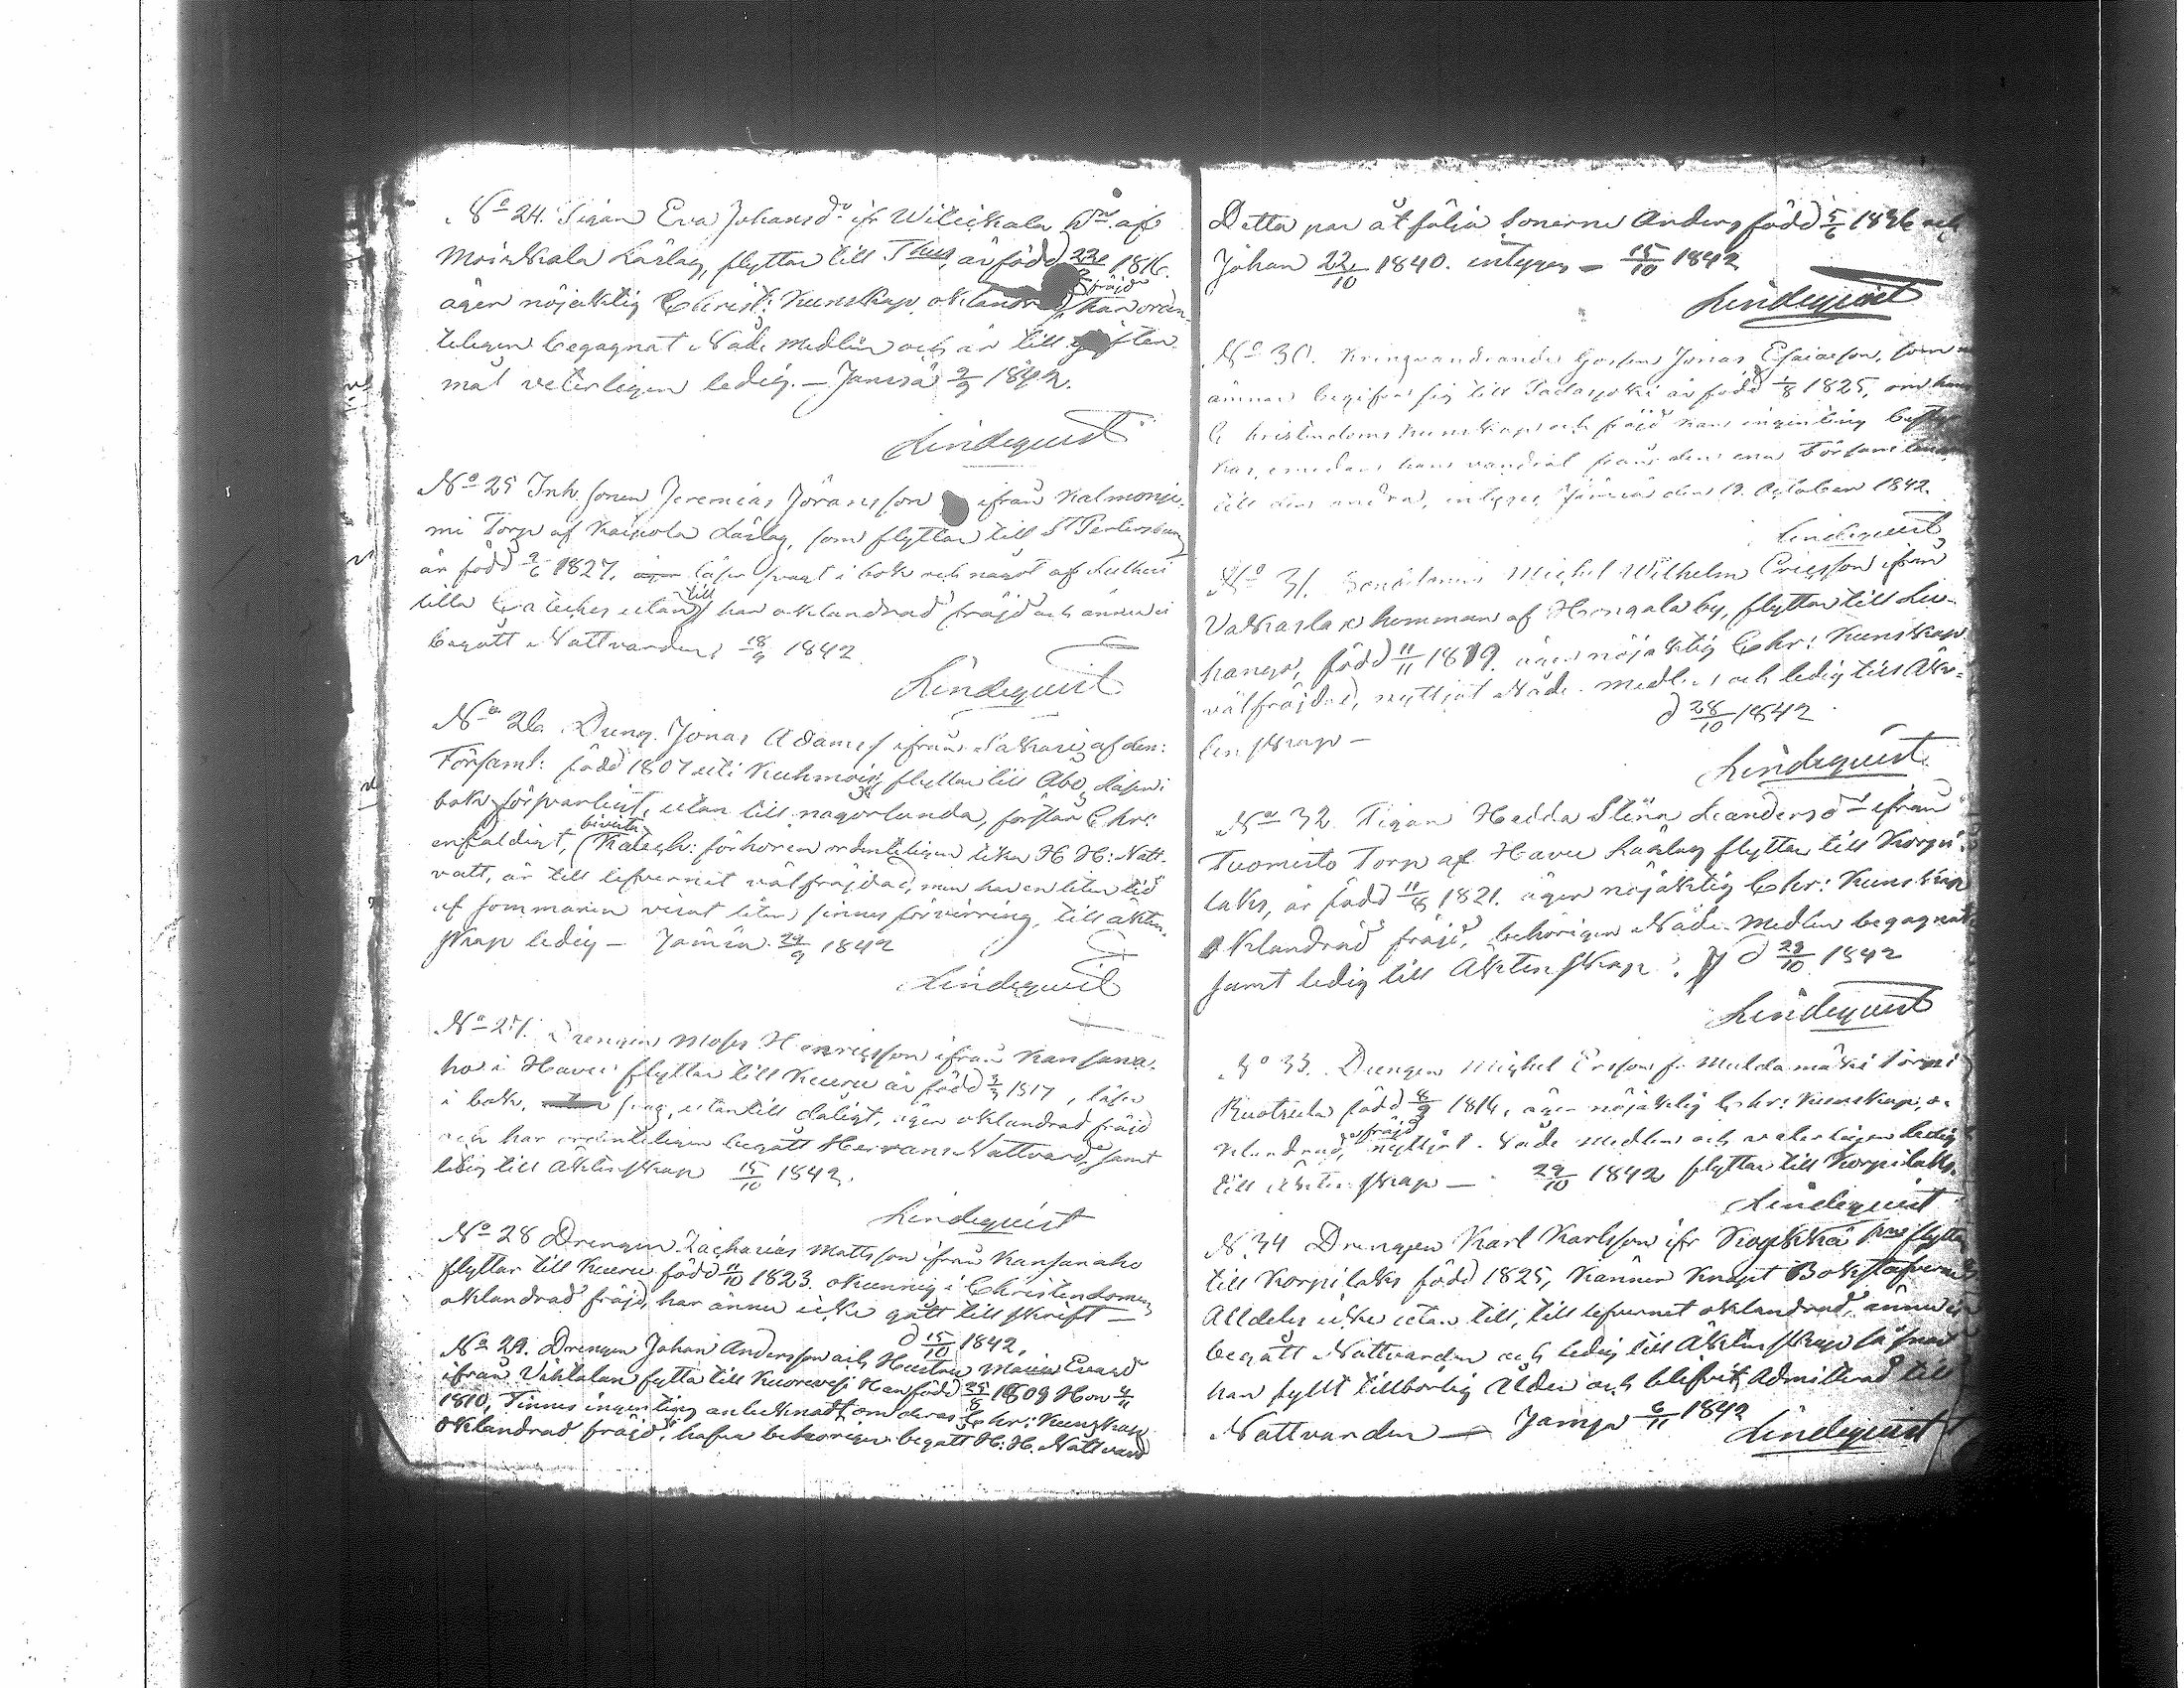 No 24. Pigan Eva Johansdr ifr Wilickala hn af
Moiskala Läslag, flyttar till Thus, är född 22/2 1816.
äger nöjaktig Christ: Kunskap, oklandr fräjd har orden-
teligen begagnat Nåde medlen och är till giften
mål veterligen ledig. — Jämsä 2/9 1842.
Lindequist
No 25 Inh. sonen Jeremias Jöransson ifrån Kalmonie-
mi Torp af Kaipola Läslag, som flyttar till St Petersburg
är född 2/6 1827, läser svagt i bok och något af Lutheri
lilla Cateches utantill har oklandrad fräjd och ännu ei
begått Nattvarden; 18/9 1842
Lindequist
No 26. Dräng. Jonas Adamss ifrån Sakari af den:
Församl: född 1807 uti Kuhmois, flyttar till Åbo, läser i
bok försvarligt, utan till någorlunda, förstår Chr:
enfaldigt, bivistat Katech: förhören ordenteligen lika H H: Natt-
vatt, är till lefvernet välfräjdad, men har en liten tid
af sommaren visat liten sinnes förvirring, till äkten-
skap ledig — Jämsä 29/9 1842
Lindequist
No 27. Drengen Moses Henricsson ifrån Kansana-
ho i Havu flyttar till Kuru är född 3/3 1817, läser
i bok, svag, utantill dåligt, äger oklandrad fräjd
och har ordenteligen begått Herrans Nattvard, samt
ledig till Äktenskap 15/10 1842.
Lindequist
No 28 Drengen Zacharias Mattsson ifrån Kansanaho
flyttar till Kuru född 11/10 1823. okunnig i Christendomen,
oklandrad fräjd, har ännu icke gått till skrift —
d 15/10 1842.
No 29. Drengen Johan Andersson och Hustru Maria Evasd
ifrån Vihtalan fytta till Kuorevesi Han född 25/8 1809 Hon 4/11
1810, Finnes ingenting antecknadt om deras Chr: Kunskap
Oklandrad fräjd, hafva behörigen begått H: H. Nattvard
Detta par åtfölja Sonerne Anders född 5/6 1836 och
Johan 22/10 1840. intygas — 15/10 1842
Lindequist
No 30. Kringvandrande Gossen Jonas Esaiasson, som
ämnar begifva sig till Padasjoki är född 1/8 1825, om hans
Christendoms kunskap och fräjd kan ingenting bestyr
kas, emedan han vandrat från den ena Församlingen
till den andra, intygas, Jämsä den 19. October 1842.
Lindequist
No 31. Michel Wilhelm Ericsson ifrån
Valkasla hemman af Hongala by, flyttar till Leu-
hangs, född 11/11 1819. äger nöjaktig Chr: Kunskap
välfräjdad, nyttjat Nåde medlen och ledig till Äk-
tenskap — d 28/10 1842
Lindequist
No 32 Pigan Hedda Stina Leandersdr ifrån
Tuomisto Torp af Havu Läslag flyttar till Korpi-
laks, är född 11/8 1821. äger nöjaktig Chr: Kunskap
oklandrad fräjd, behörigen Nåde Medlen begagnat
samt ledig till Äktenskap. d 29/10 1842
Lindequist
No 33. Drengen Michel Ersson fr Muldamäki Torp i
Ruotsula född 8/9 1816, äger nöjaktig Chr: Kunskap, o-
klandrad fräjd nyttjat Nåde medlen och veterligen ledig
till Äktenskap — 29/10 1842 flyttar till Korpilaks.
Lindequist
N 34 Drengen Karl Karlsson ifr flyttar
till Korpilaks född 1825, Känner Knapt Bokstäfverne
Alldeles icke utan till, till lefvernet oklandrad, ännu ei
begått Nattvarden och ledig till Äktenskap så snart
han fyllt tillbörlig Ålder och blifvit Admitterad till
Nattvarden — Jämsä 6/11 1842
Lindequist